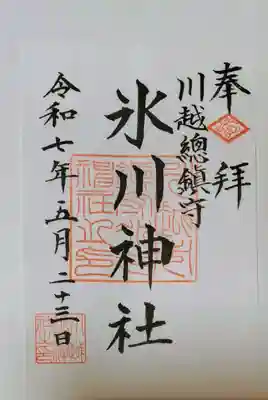 奉拝
川越總鎮守
氷川神社
令和七年五月二十三日